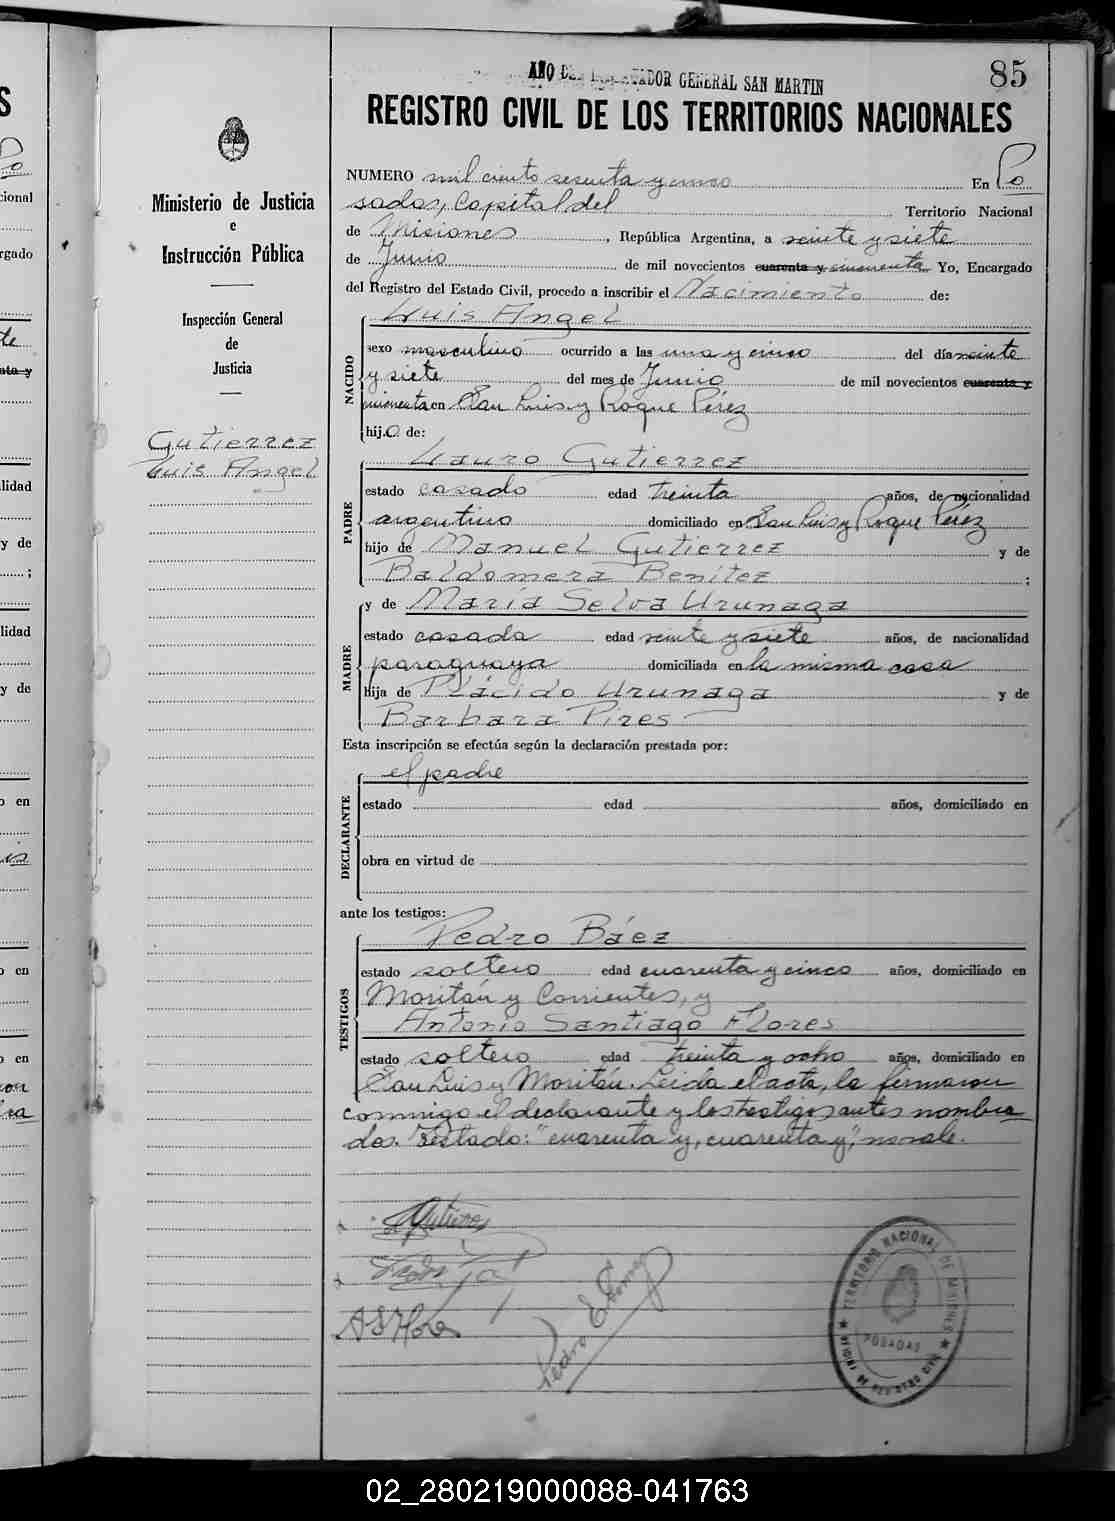 AÑO DEL LIBERTADOR GENERAL SAN MARTIN
85
REGISTRO CIVIL DE LOS TERRITORIOS NACIONALES
Ministerio de Justicia
e
Instrucción Pública
Inspección General
de
Justicia
Gutierrez
Luis Angel
NUMERO mil ciento sesenta y cinco En Po
sadas, Capital del Territorio Nacional
de Misiones, República Argentina, a veinte y siete
de Junio de mil novecientos cuarenta y cincuenta Yo, Encargado
del Registro del Estado Civil, procedo a inscribir el Nacimiento de:
Luis Angel
NACIDO
sexo masculino ocurrido a las una y cinco del día veinte
y siete del mes de Junio de mil novecientos cuarenta y
cincuenta en San Luis y Roque Pérez
hijo de:
Lauro Gutierrez
PADRE
estado casado edad treinta años, de nacionalidad
argentino domiciliado en San Luis y Roque Pérez
hijo de Manuel Gutierrez y de
Baldomera Benitez ;
y de María Selva Urunaga
MADRE
estado casada edad veinte y siete años, de nacionalidad
paraguaya domiciliada en la misma casa
hija de Plácido Urunaga y de
Barbara Pires
Esta inscripción se efectúa según la declaración prestada por:
el padre
DECLARANTE
estado edad años, domiciliado en
obra en virtud de
ante los testigos:
Pedro Báez
TESTIGOS
estado soltero edad cuarenta y cinco años, domiciliado en
Moritán y Corrientes, y
Antonio Santiago Flores
estado soltero edad treinta y ocho años, domiciliado en
San Luis y Moritán. Leída el acta, la firmaron
conmigo el declarante y los testigos antes nombra
dos. Testado: "cuarenta y, cuarenta y", no vale.
Pedro
TERRITORIO NACIONAL DE MISIONES
POSADAS
OFICINA DE REGISTRO CIVIL
02_280219000088-041763